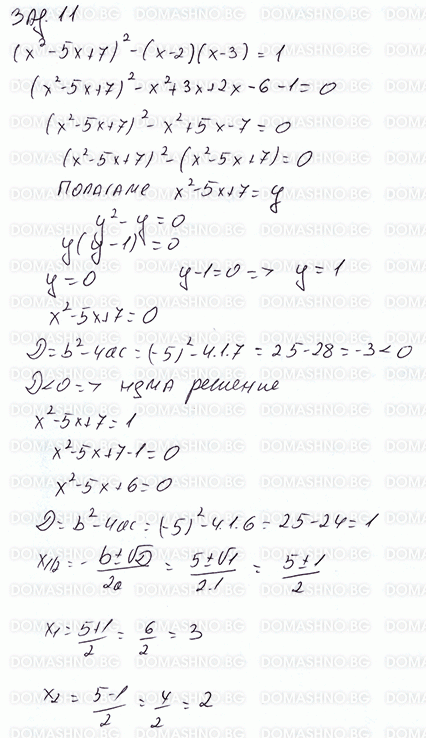 Зад 11
(x²-5x+7)²-(x-2)(x-3)=1
(x²-5x+7)²-x²+3x+2x-6-1=0
(x²-5x+7)²-x²+5x-7=0
(x²-5x+7)²-(x²-5x+7)=0
Полагаме x²-5x+7=y
y²-y=0
y(y-1)=0
y=0 y-1=0=> y=1
x²-5x+7=0
D=b²-4ac=(-5)²-4.1.7=25-28=-3<0
D<0=> няма решение
x²-5x+7=1
x²-5x+7-1=0
x²-5x+6=0
D=b²-4ac=(-5)²-4.1.6=25-24=1
x₁/₂=-b±√D/2a=5±√1/2.1=5±1/2
x₁=5+1/2=6/2=3
x₂=5-1/2=4/2=2